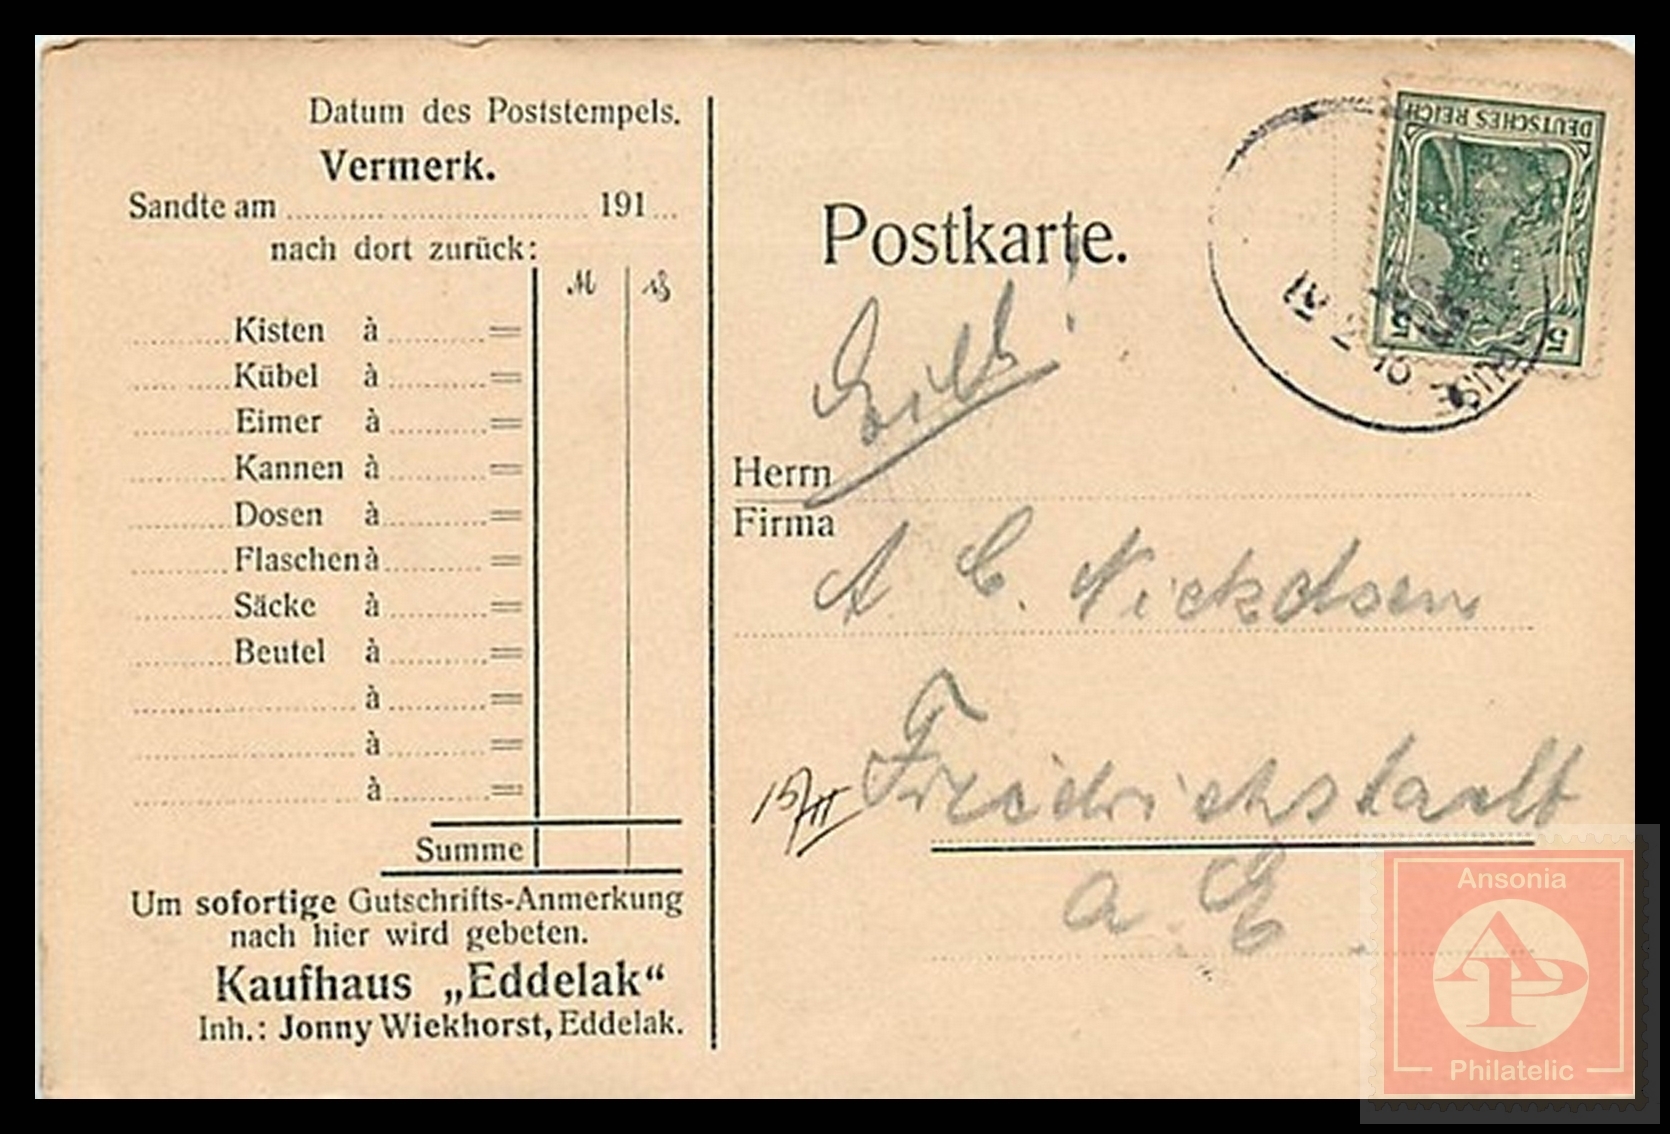 Datum des Poststempels.
Vermerk.
Sandte am 191
nach dort zurück:
M ₰
Kisten à =
Kübel à =
Eimer à =
Kannen à =
Dosen à =
Flaschen à =
Säcke à =
Beutel à =
à =
à =
à =
Summe
Um sofortige Gutschrifts-Anmerkung
nach hier wird gebeten.
Kaufhaus „Eddelak“
Inh.: Jonny Wiekhorst, Eddelak.
DEUTSCHES REICH
5 5
Postkarte.
Eilt!
Herrn
Firma
A C. Nickolsen
15/II
Friedrichstadt
a. E.
Ansonia
AP
Philatelic